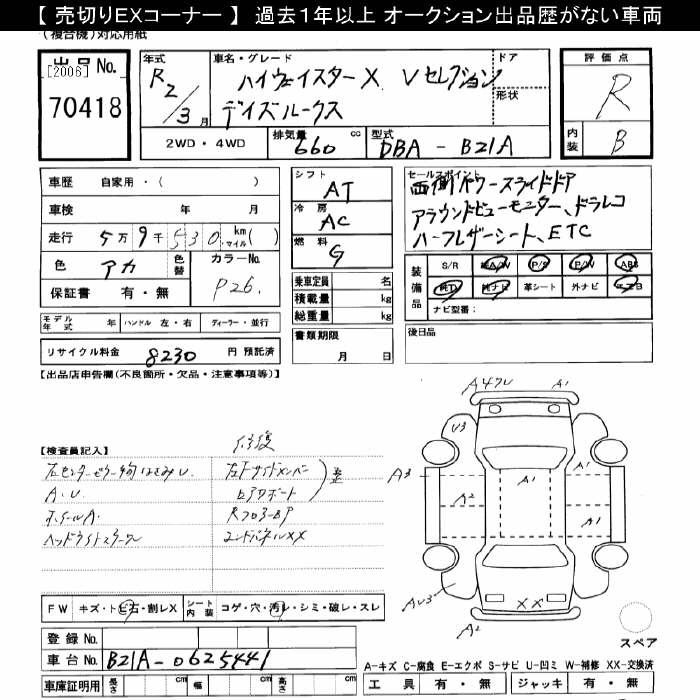 【 売切りEXコーナー 】 過去１年以上 オークション出品歴がない車両
(複合機)対応用紙
出品No.
[2006]
70418
年式
R2/3月
車名・グレード
ハイウェイスターX Vセレクション
デイズルークス
ドア
形状
2WD・4WD
排気量
660 cc
型式
DBA-B21A
評価点
R
内装
B
車歴 自家用・( )
車検 年 月
走行 5万9千530 km マイル( )
色 アカ
色替
カラーNo. P26.
保証書 有・無
シフト
AT
冷房
AC
燃料
G
乗車定員 名
積載量 kg
総重量 kg
書類期限
月 日
セールスポイント
両側パワースライドドア
アラウンドビューモニター、ドラレコ
ハーフレザーシート、ETC
装備品
S/R A/W P/S P/W ABS
純TV 純ナビ 革シート 外ナビ エアB
ナビ型番：
後日品
モデル年式 年 ハンドル 左・右 ディーラー・並行
リサイクル料金 8230 円 預託済
【出品店申告欄(不良個所・欠品・注意事項等)】
【検査員記入】
修復
A.U
ホイールA.
ヘッドライトスクール
左Fサイドメンバー
R フロアーBP
エンドパネルXX
A4 U A1
U3
A3
A2
A1
A1
A1
AU3
XX
A2
スペア
FW キズ・トビ石・割レX
シート内装 コゲ・穴・汚レ・シミ・破レ・スレ
登録 No.
車台 No. B21A-0625441
車庫証明用 長さ cm 幅 cm 高さ cm
A－キズ C－腐食 E－エクボ S－サビ U－凹ミ W－補修 XX－交換済
工具 有・無 ジャッキ 有・無